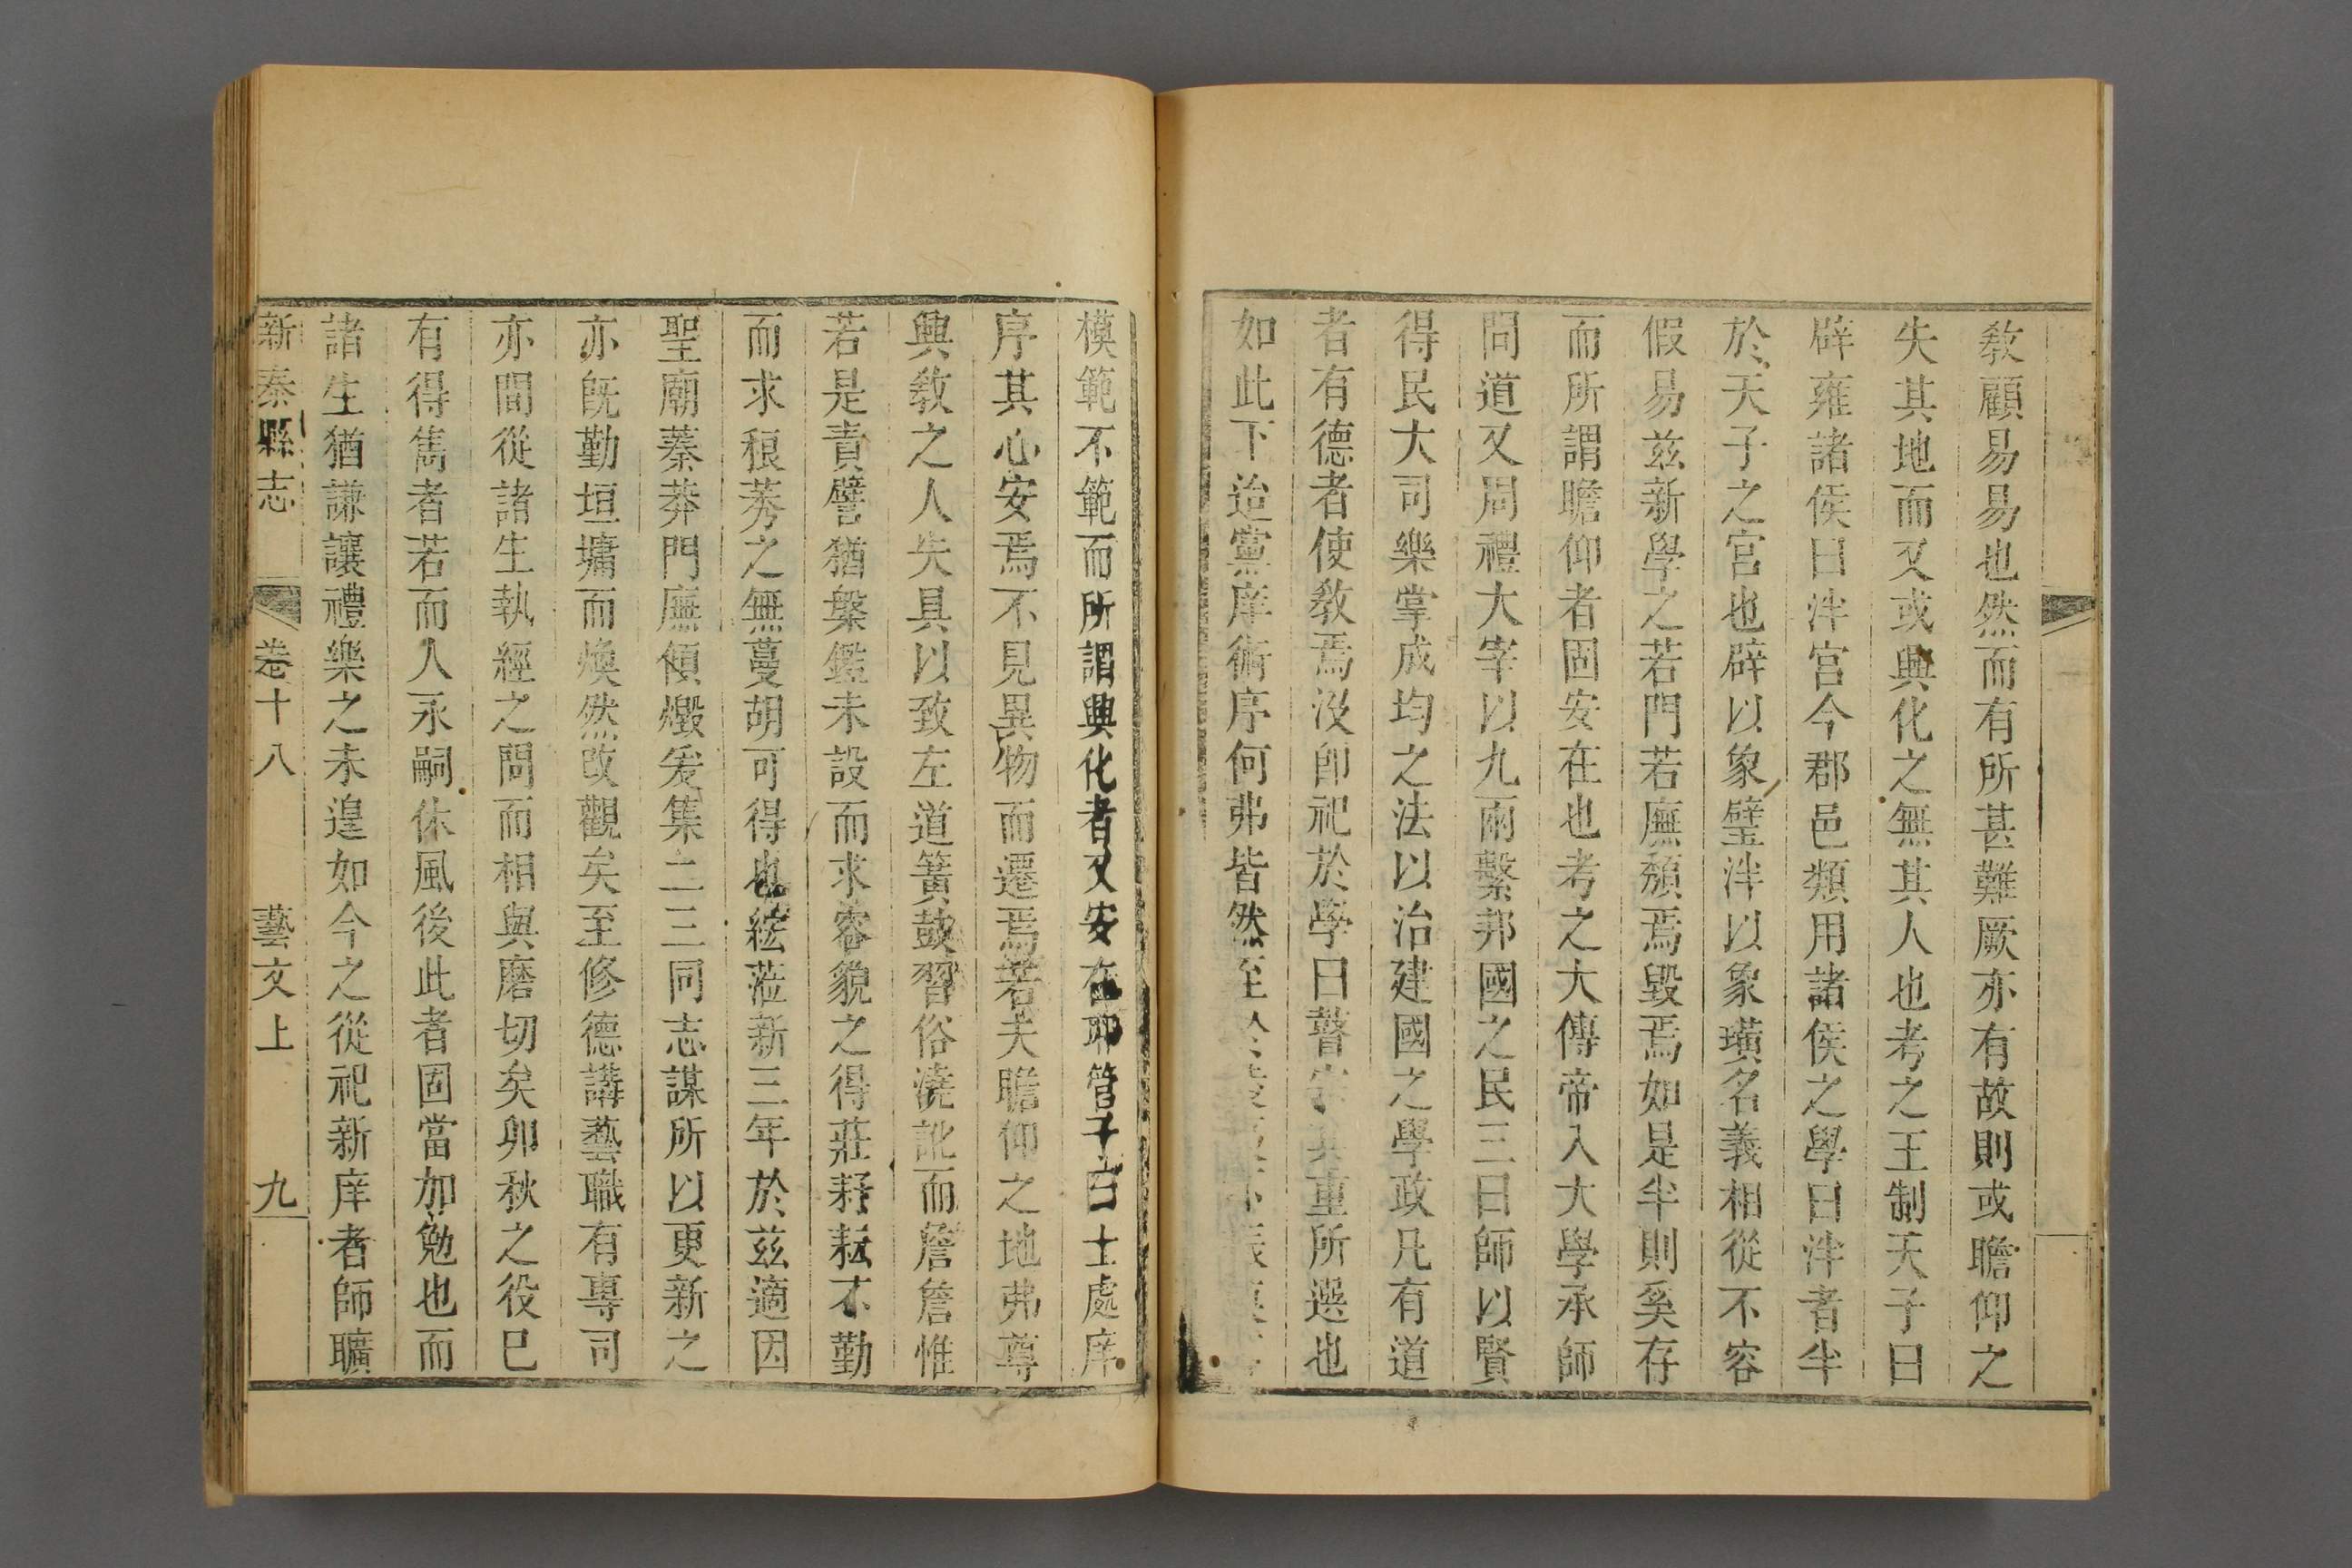 教顧易易也然而有所甚難厥亦有故則或瞻仰之
失其地而又或興化之無其人也考之王制天子曰
辟雍諸侯曰泮宮今郡邑類用諸侯之學曰泮者半
於天子之宮也辟以象璧泮以象璜名義相從不容
假易兹新學之若門若廡頹焉毀焉如是半則奚存
而所謂瞻仰者固安在也考之大傳帝入大學承師
問道又周禮大宰以九兩繫邦國之民三曰師以賢
得民大司樂掌成均之法以治建國之學政凡有道
者有德者使敎焉沒卽祀於學曰瞽宗其重所選也
如此下迨黨庠術序何弗皆然至
模範不範而所謂興化者又安在耶管子曰士處庠
序其心安焉不見異物而遷焉若夫瞻仰之地弗尊
興敎之人失具以致左道簧鼓習俗澆訛而詹詹惟
若是責譬猶槃鑑未設而求容貌之得莊耔耘不勤
而求稂莠之無蔓胡可得也絃蒞新三年於兹適因
聖廟蓁莽門廡傾燬爰集二三同志謀所以更新之
亦旣勤垣墉而煥然改觀矣至修德講藝職有專司
亦間從諸生執經之問而相與磨切矣卯秋之役巳
有得雋者若而人永嗣休風後此者固當加勉也而
諸生猶謙讓禮樂之未遑如今之從祀新庠者師曠
新泰縣志　卷十八　藝文上　九